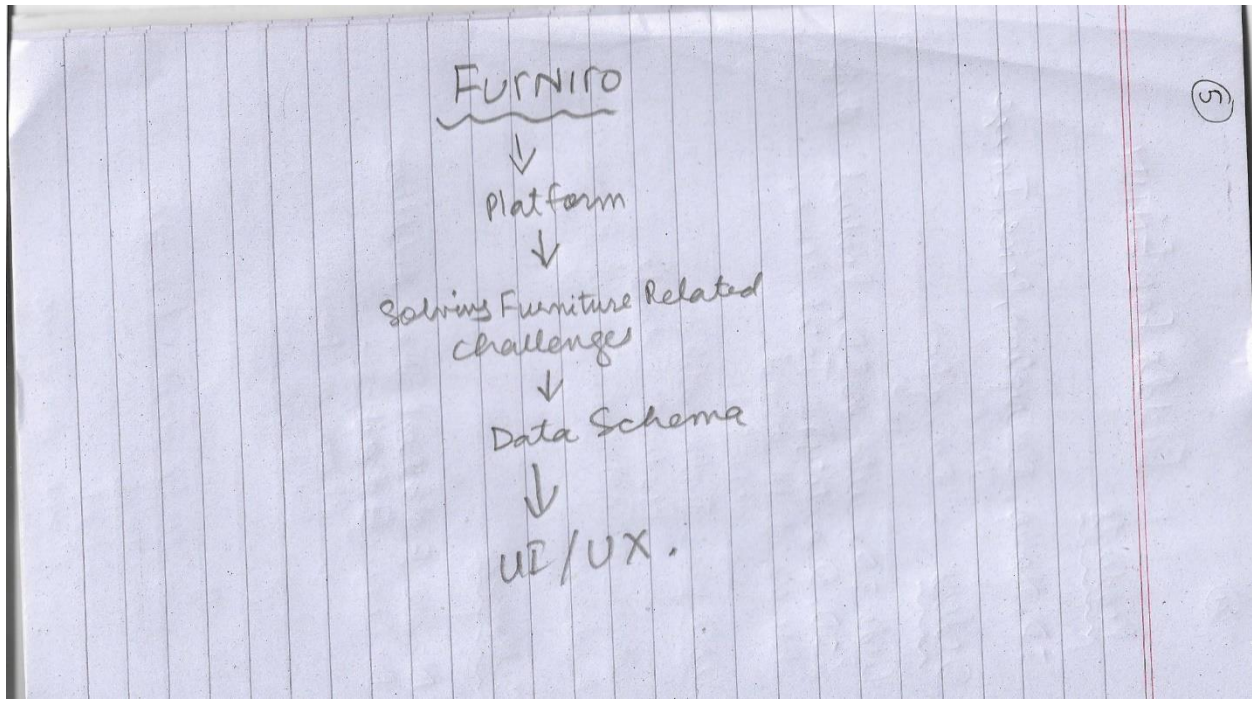 FurNiro
↓
Platform
↓
Solving Furniture Related
challenges
↓
Data Schema
↓
UI/UX.
5